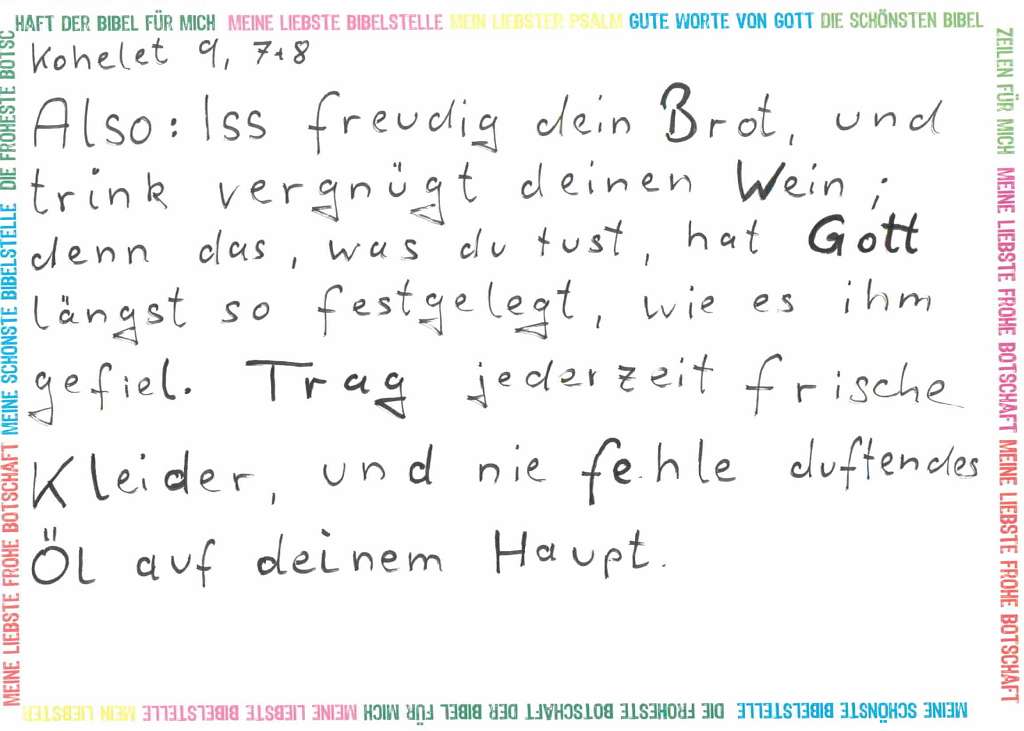 HAFT DER BIBEL FÜR MICH MEINE LIEBSTE BIBELSTELLE MEIN LIEBSTER PSALM GUTE WORTE VON GOTT DIE SCHÖNSTEN BIBEL
ZEILEN FÜR MICH MEINE LIEBSTE FROHE BOTSCHAFT MEINE LIEBSTE FROHE BOTSCHAFT
Kohelet 9, 7+8
Also: Iss freudig dein Brot, und
trink vergnügt deinen Wein;
denn das, was du tust, hat Gott
längst so festgelegt, wie es ihm
gefiel. Trag jederzeit frische
Kleider, und nie fehle duftendes
Öl auf deinem Haupt.
MEINE SCHÖNSTE BIBELSTELLE DIE FROHESTE BOTSCHAFT DER BIBEL FÜR MICH MEINE LIEBSTE BIBELSTELLE MEIN LIEBSTER
MEINE LIEBSTE FROHE BOTSCHAFT MEINE SCHÖNSTE BIBELSTELLE DIE FROHESTE BOTSC